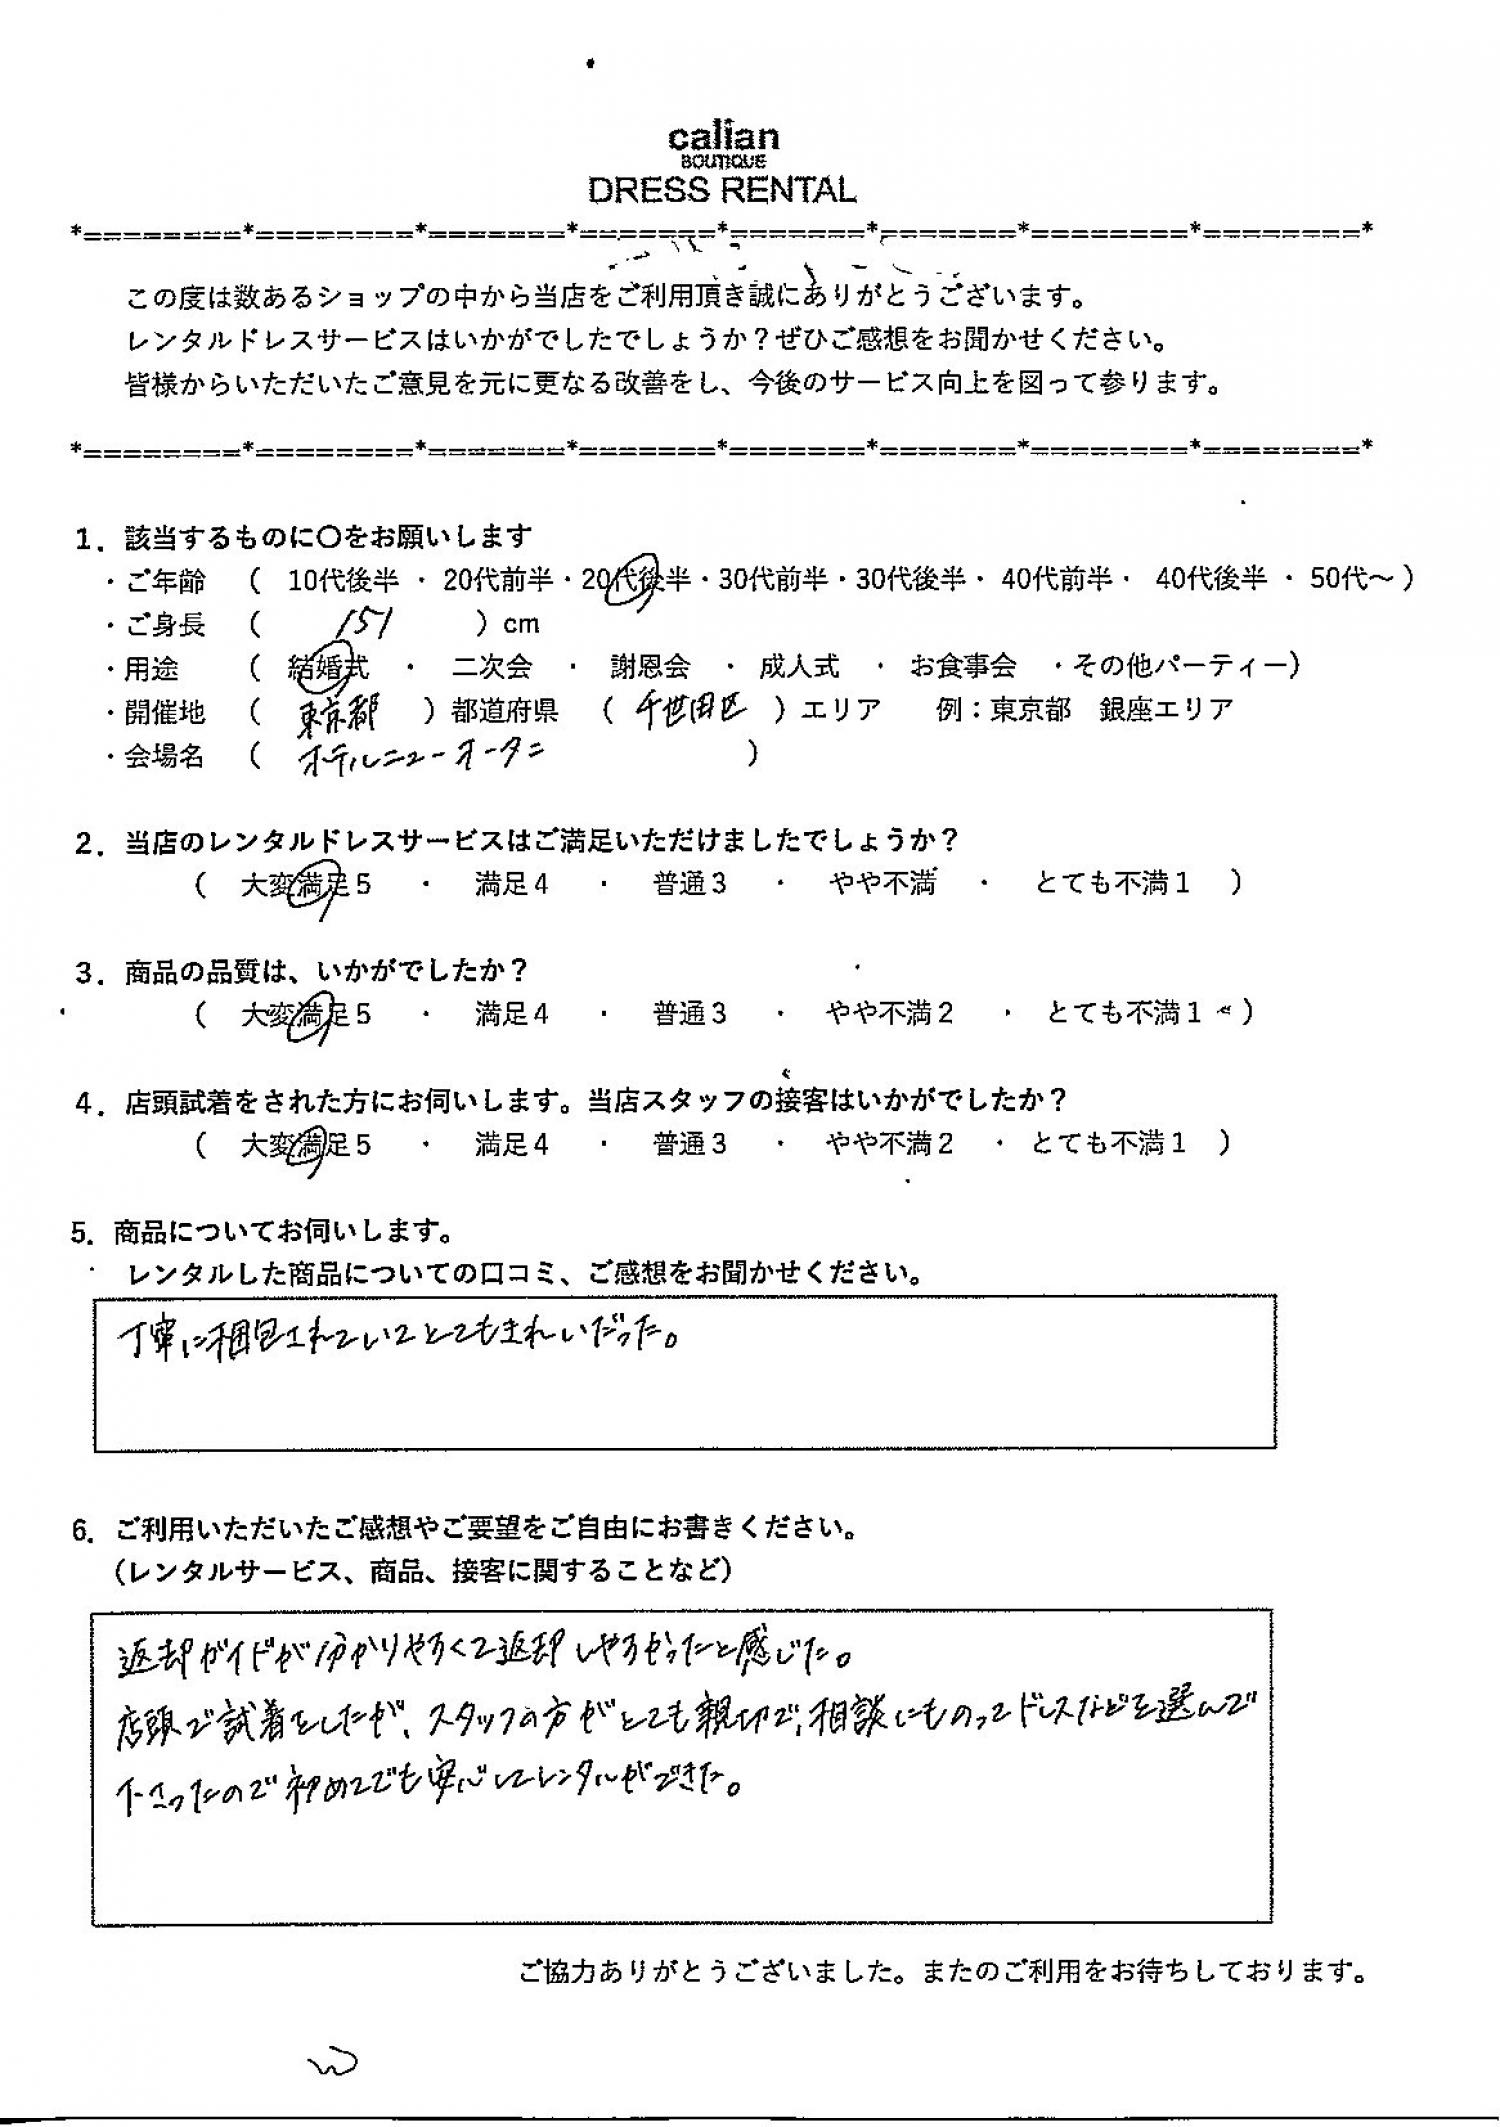 calian
BOUTIQUE
DRESS RENTAL
*========*========*=======*=======*=======*=======*========*========*
この度は数あるショップの中から当店をご利用頂き誠にありがとうございます。
レンタルドレスサービスはいかがでしたでしょうか？ぜひご感想をお聞かせください。
皆様からいただいたご意見を元に更なる改善をし、今後のサービス向上を図って参ります。
*========*========*=======*=======*=======*=======*========*========*
1．該当するものに〇をお願いします
・ご年齢 （ 10代後半 ・ 20代前半・20代後半・30代前半・30代後半・ 40代前半・ 40代後半 ・ 50代～ ）
・ご身長 （ 151 ）cm
・用途 （ 結婚式 ・ 二次会 ・ 謝恩会 ・ 成人式 ・ お食事会 ・その他パーティー）
・開催地 （ 東京都 ）都道府県 （ 千世田区 ）エリア 例：東京都 銀座エリア
・会場名 （ ホテルニューオータニ ）
2．当店のレンタルドレスサービスはご満足いただけましたでしょうか？
（ 大変満足５ ・ 満足４ ・ 普通３ ・ やや不満 ・ とても不満１ ）
3．商品の品質は、いかがでしたか？
（ 大変満足５ ・ 満足４ ・ 普通３ ・ やや不満２ ・ とても不満１ ）
4．店頭試着をされた方にお伺いします。当店スタッフの接客はいかがでしたか？
（ 大変満足５ ・ 満足４ ・ 普通３ ・ やや不満２ ・ とても不満１ ）
5．商品についてお伺いします。
レンタルした商品についての口コミ、ご感想をお聞かせください。
丁寧に梱包されていてとてもきれいだった。
6．ご利用いただいたご感想やご要望をご自由にお書きください。
（レンタルサービス、商品、接客に関することなど）
返却ガイドが分かりやすくて返却しやすかったと感じた。
店頭で試着をしたが、スタッフの方がとても親切で、相談にものってドレスなどを選んで
下さったので初めてでも安心してレンタルができた。
ご協力ありがとうございました。またのご利用をお待ちしております。